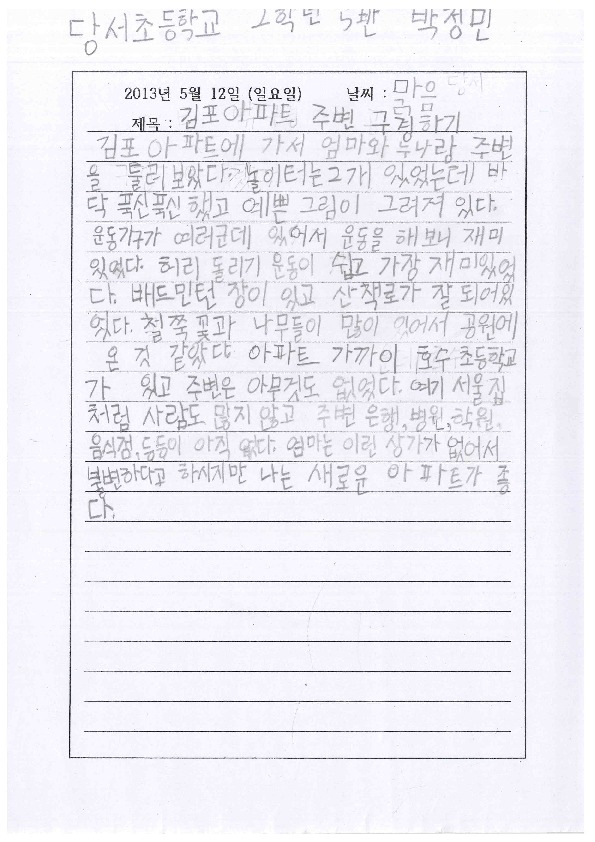 당서초등학교 2학년 5반 박정민
2013년 5월 12일 (일요일) 날씨 : 맑음
제목 : 김포아파트 주변 구경하기
김포 아파트에 가서 엄마와 누나랑 주변
을 둘러보았다. 놀이터는 2개 있었는데 바
닥 푹신푹신 했고 예쁜 그림이 그려져 있다.
운동기구가 여러군데 있어서 운동을 해보니 재미
있었다. 허리 돌리기 운동이 쉽고 가장 재미있었
다. 배드민턴 장이 있고 산책로가 잘 되어있
었다. 철쭉 꽃과 나무들이 많이 있어서 공원에
온 것 같았다 아파트 가까이 호수 초등학교
가 있고 주변은 아무것도 없었다. 여기 서울 집
처럼 사람도 많지 않고 주변 은행, 병원, 학원,
음식점, 등등이 아직 없다. 엄마는 이런 상가가 없어서
불변하다고 하시지만 나는 새로운 아파트가 좋
다.